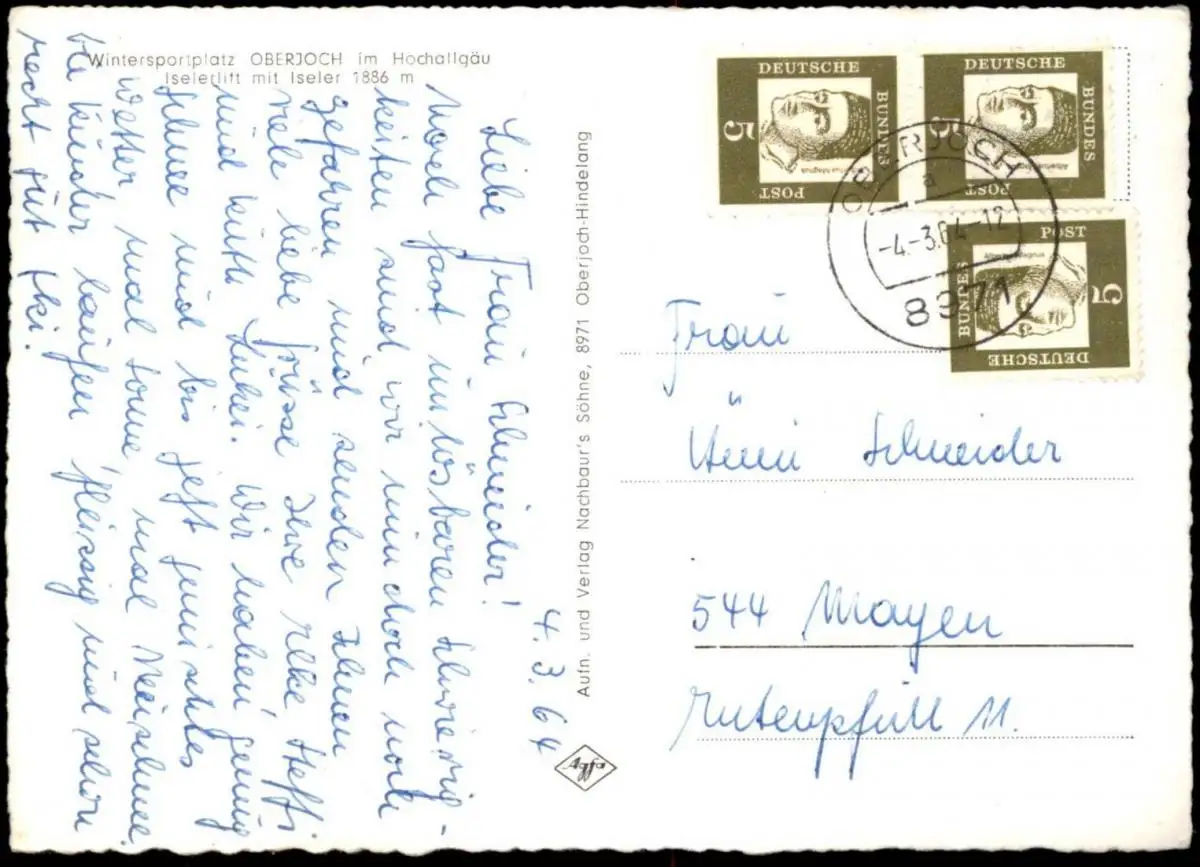 Wintersportplatz OBERJOCH im Hochallgäu
Iselerlift mit Iseler 1886 m
4.3.64
Liebe Frau Schneider!
Nach fast unlösbaren Schwierig-
keiten sind wir nun doch noch
gefahren und senden Ihnen
viele liebe Grüsse Ihre Elke Steffi
und Kuth. Wir haben genug
Schnee und bis jetzt gemischtes
Wetter, mal Sonne, mal Neuschnee.
Die Kinder laufen fleissig und schon
recht gut Ski.
Aufn. und Verlag Nachbaur's Söhne, 8971 Oberjoch-Hindelang
Agfa
DEUTSCHE
BUNDES
POST
5
Albertus Magnus
DEUTSCHE
BUNDES
POST
5
Albertus Magnus
DEUTSCHE
BUNDES
POST
5
Albertus Magnus
OBERJOCH
a
-4.-3.64-12
8971
Frau
Änni Schneider
544 Mayen
Entenpfuhl 11.